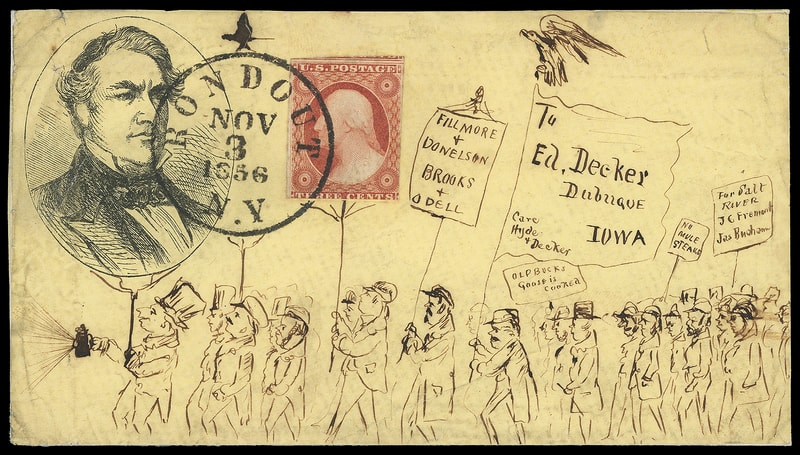 RONDOUT
NOV
3
1856
N.Y
U.S. POSTAGE
THREE CENTS
FILLMORE
+
DONELSON
BROOKS
+
ODELL
To
Ed, Decker
Dubuque
IOWA
Care
Hyde
+ Decker
OLD BUCKS
Goose is
COOKED
NO
MULE
STEAKS
For Salt
RIVER
J C Fremont
Jas Buchanan